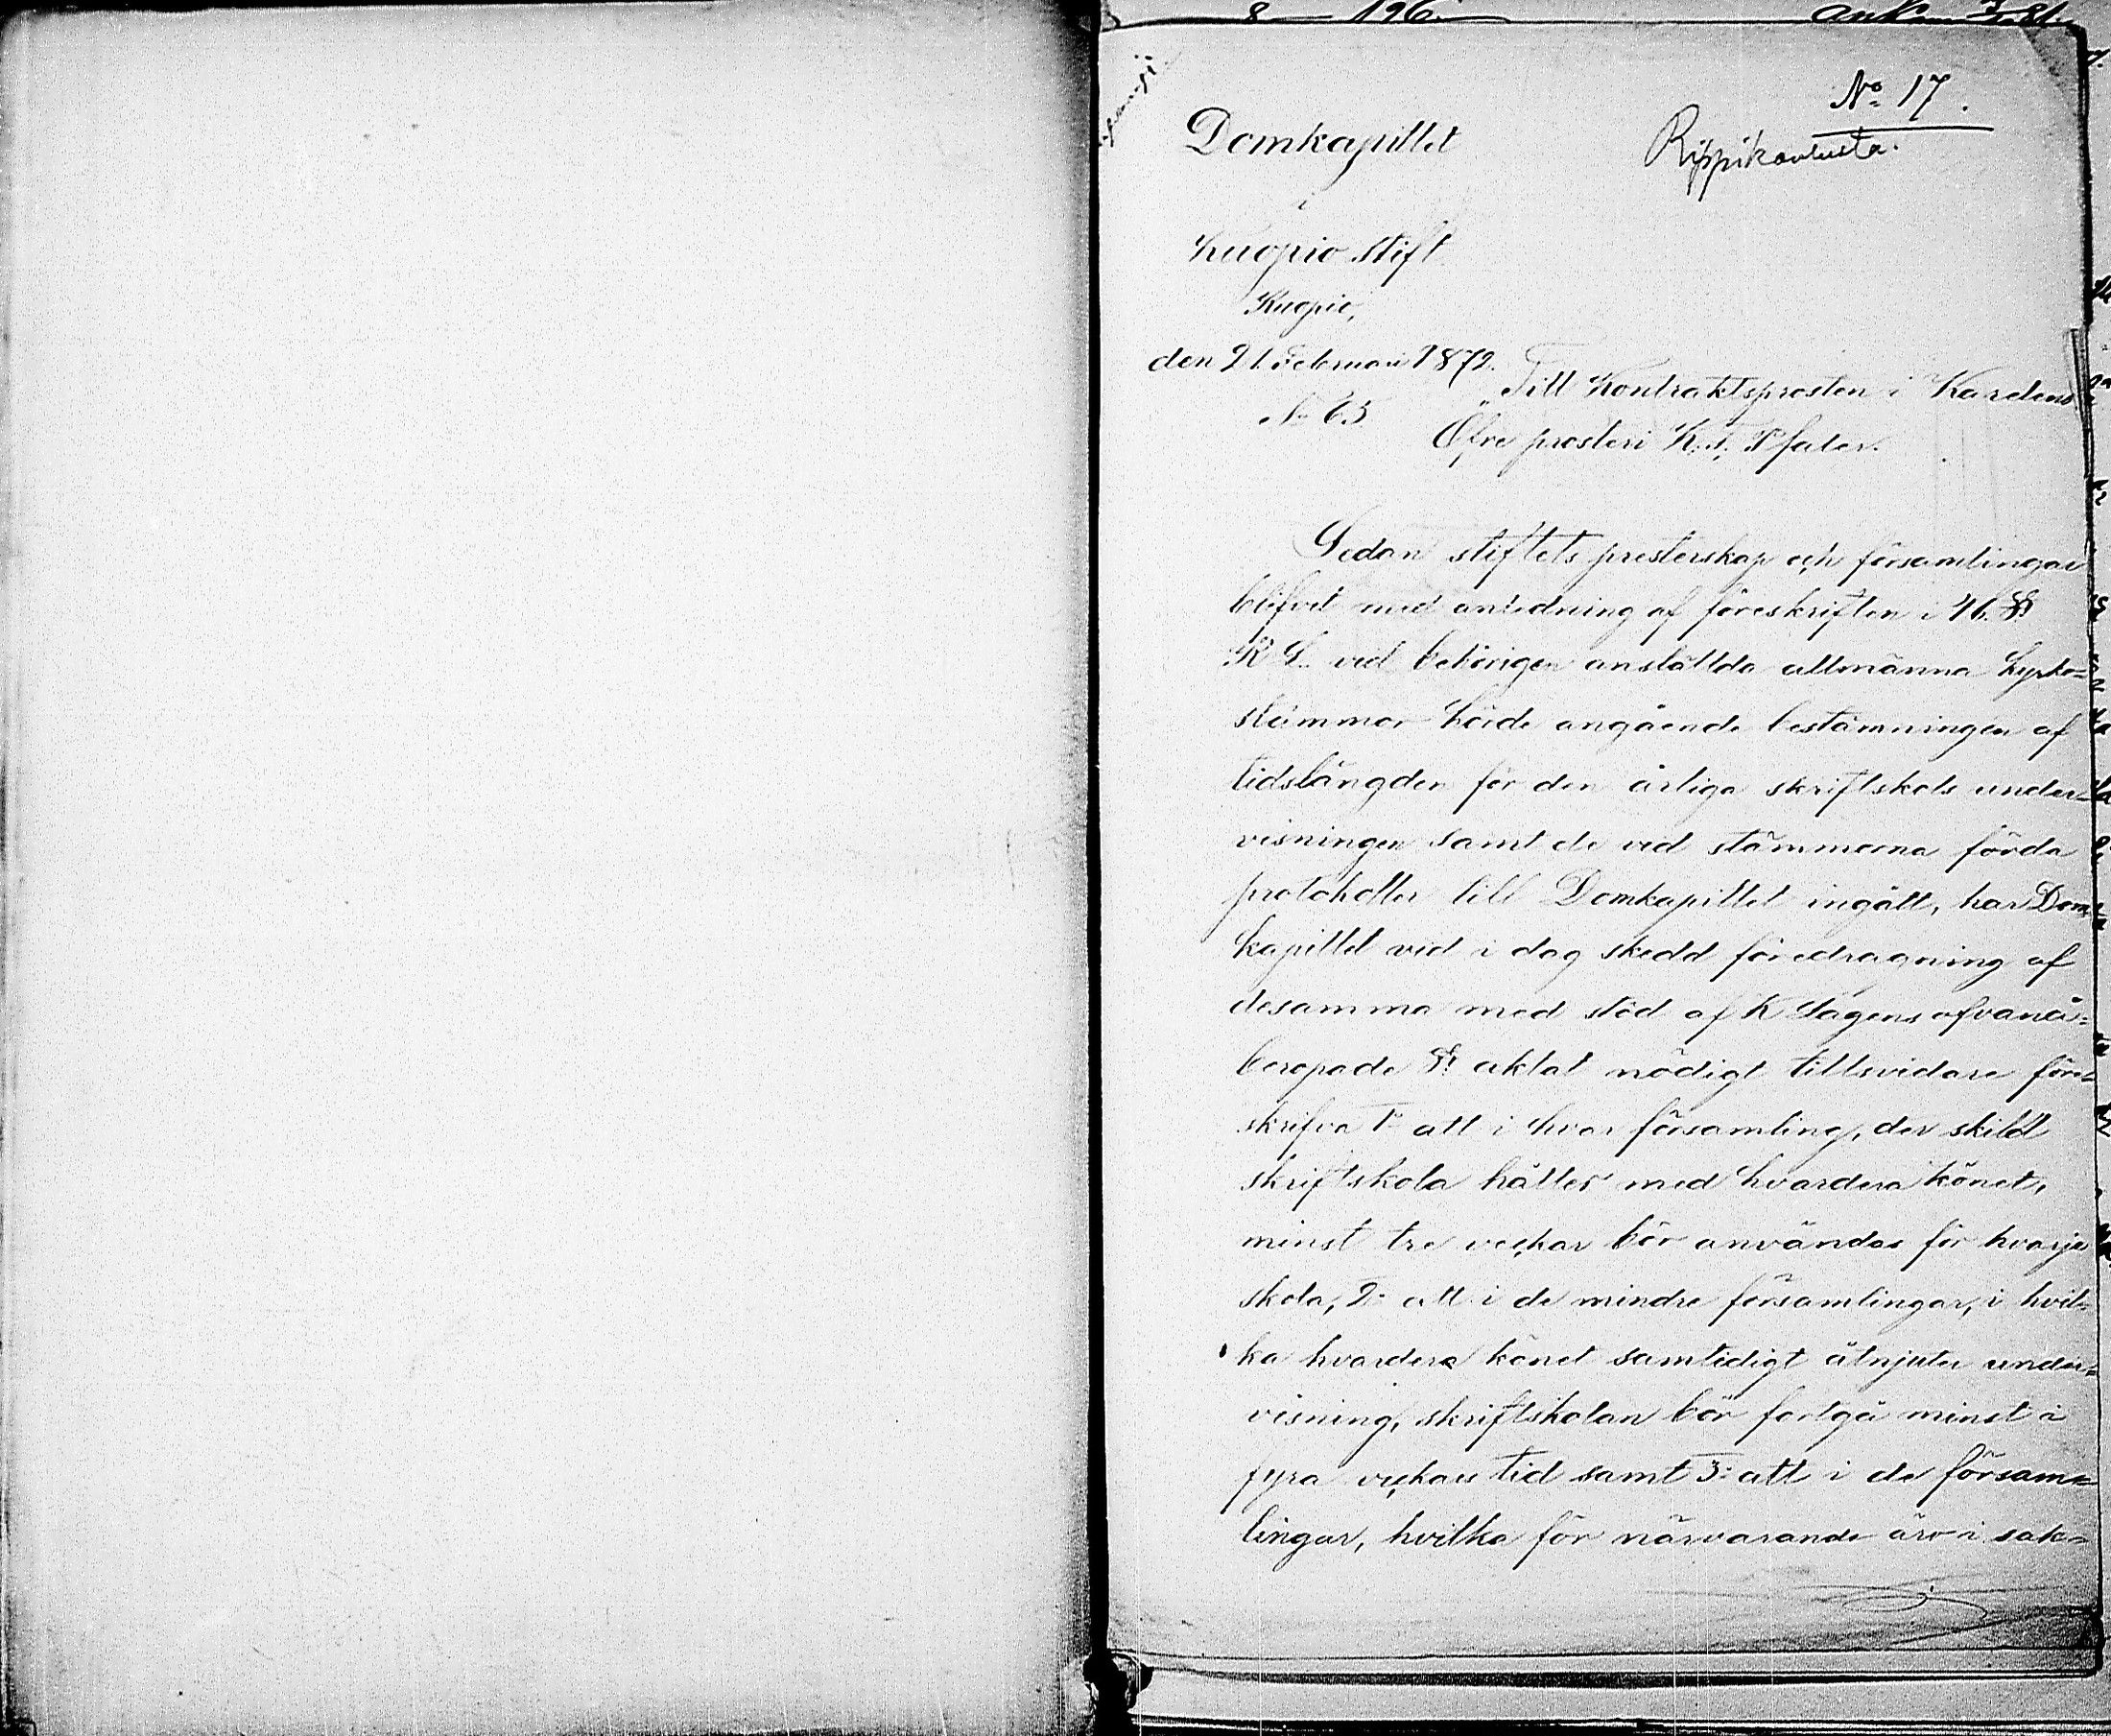 8 196
No 17.
Domkapitlet
Rippikoulusta.
i
Kuopio Stift
Kuopio,
den 21. Februari 1872.
Till Kontraktsprosten i Karelens
No 65
Öfre prosteri K. t. Psaler.
Sedan stiftets presterskap och församlingar
blifvit med anledning af föreskriften i 46. §
K L. vid behörigen anstälda allmänna kyrko=
stämmor hörde angående bestämningen af
tidslängden för den årliga skriftskols under=
visningen samt de vid stämmorna förda
protokoller till Domkapitlet ingått, har Dom=
kapitlet vid i dag skedd föredragning af
desamma med stöd af K Lagens ofvanå=
beropade § aktat nödigt tillsvidare före=
skrifva 1o att i hvar församling, der skild
skriftskola hålles med hvardera könet,
minst tre veckor bör användas för hvarje
skola, 2o att i de mindre församlingar, i hvil=
ka hvardera könet samtidigt åtnjuter under=
visning, skriftskolan bör fortgå minst i
fyra veckors tid samt 3o att i de försam=
lingar, hvilka för närvarande äro i sak=